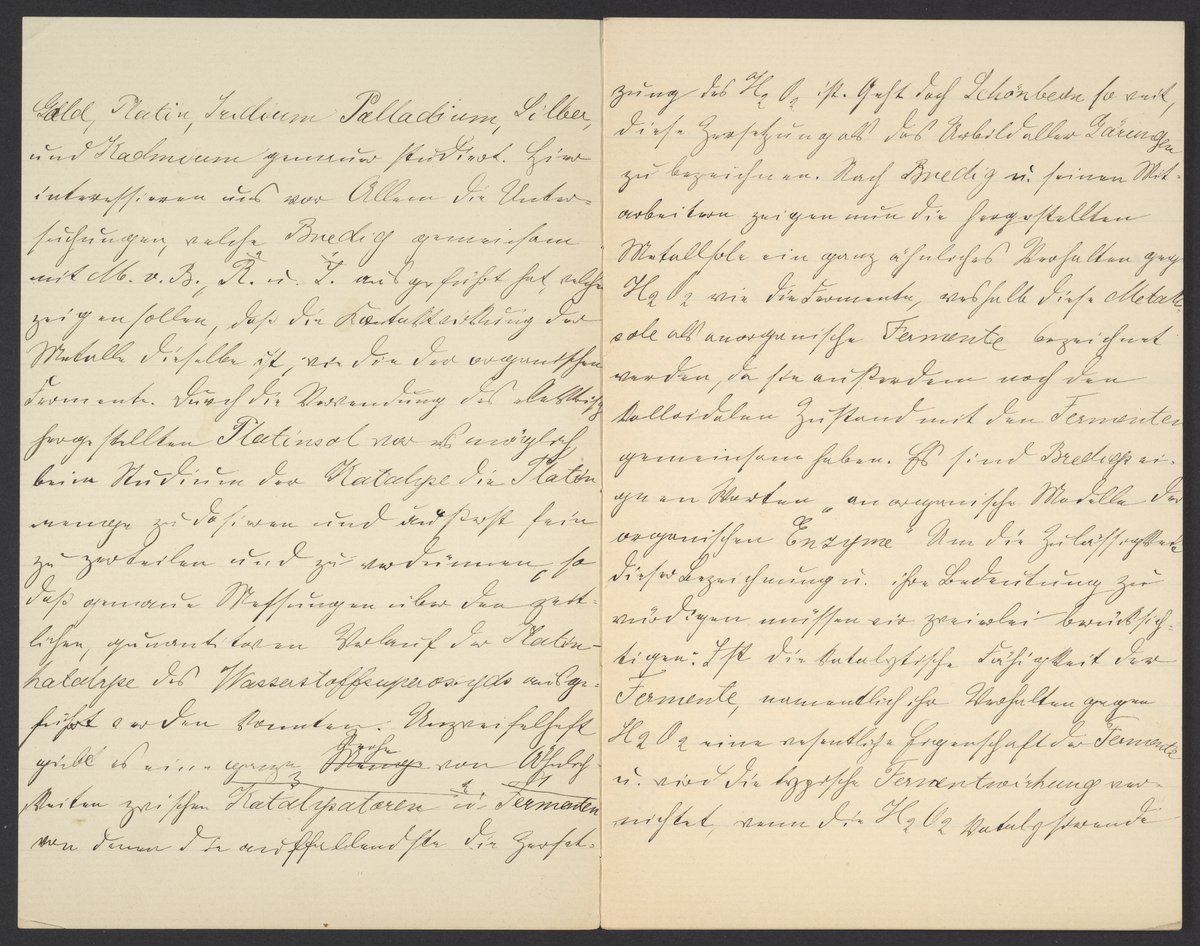 Gold, Platin, Iridium Palladium, Silber,
und Kadmium genauer studiert. Hier
interessieren uns vor Allem die Unter-
suchungen, welche Bredig gemeinsam
mit M. v. B., R. u. I. ausgeführt hat, welche
zeigen sollen, daß die Kontaktwirkung der
Metalle dieselbe ist, wie die der organischen
Fermente. Durch die Verwendung des elektrisch
hergestellten Platinsol war es möglich
beim Studium der Katalyse die Platin
menge zu dosieren und äußerst fein
zu zerteilen und zu verdünnen, so
daß genaue Messungen über den zeit-
lichen, quantitaven Verlauf der Platin-
katalyse des Wasserstoffsuperoxyds ausge-
führt werden konnten. Unzweifelhaft
giebt es eine ganze Menge Reihe von Ähnlich-
keiten zwischen Katalysatoren u. Fermenten
von denen die auffallendste die Zerset-
zung des H2O2 ist. Geht doch Schönbein so weit,
diese Zersetzung als das Urbild aller Gärungen
zu bezeichnen. Nach Bredig u. seinen Mit-
arbeitern zeigen nun die hergestellten
Metallsole ein ganz ähnliches Verhalten geg
H2O2 wie die Fermente, weshalb diese Metall-
sole als anorganische Fermente bezeichnet
werden, da sie außerdem noch den
kolloidalen Zustand mit den Fermenten
gemeinsam haben. Es sind Bredigs ei-
gnen Worten „anorganische Modelle der
organischen Enzyme" Um die Zulässigkeit
dieser Bezeichnung u. ihre Bedeutung zu
würdigen müssen wir zweierlei berücksich-
tigen: Ist die katalytische Fähigkeit der
Fermente, namentlich ihr Verhalten gegen
H2O2 eine wesentliche Eigenschaft der Fermente
u. wird die typische Fermentwirkung ver-
nichtet, wenn die H2O2 katalysierende